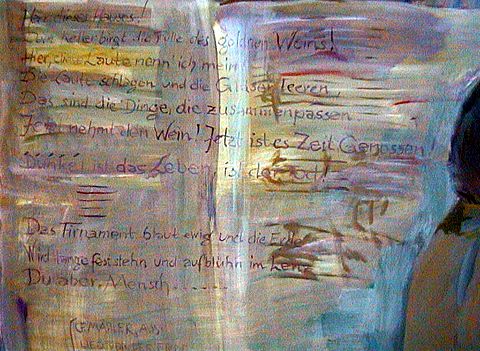 Herr dieses Hauses!
Dein Keller birgt die Fülle des goldnen Weins!
Hier, diese Laute nenn' ich mein
Die Laute schlagen und die Gläser leeren,
Das sind die Dinge, die zusammenpassen
Jetzt nehmt den Wein! Jetzt ist es Zeit Genossen!
Dunkel ist das Leben, ist der Tod!
Das Firmament blaut ewig und die Erde
Wird lange fest stehn und aufblühn im Lenz
Du aber, Mensch......
[G. MAHLER, AUS:
LIED VON DER ERDE